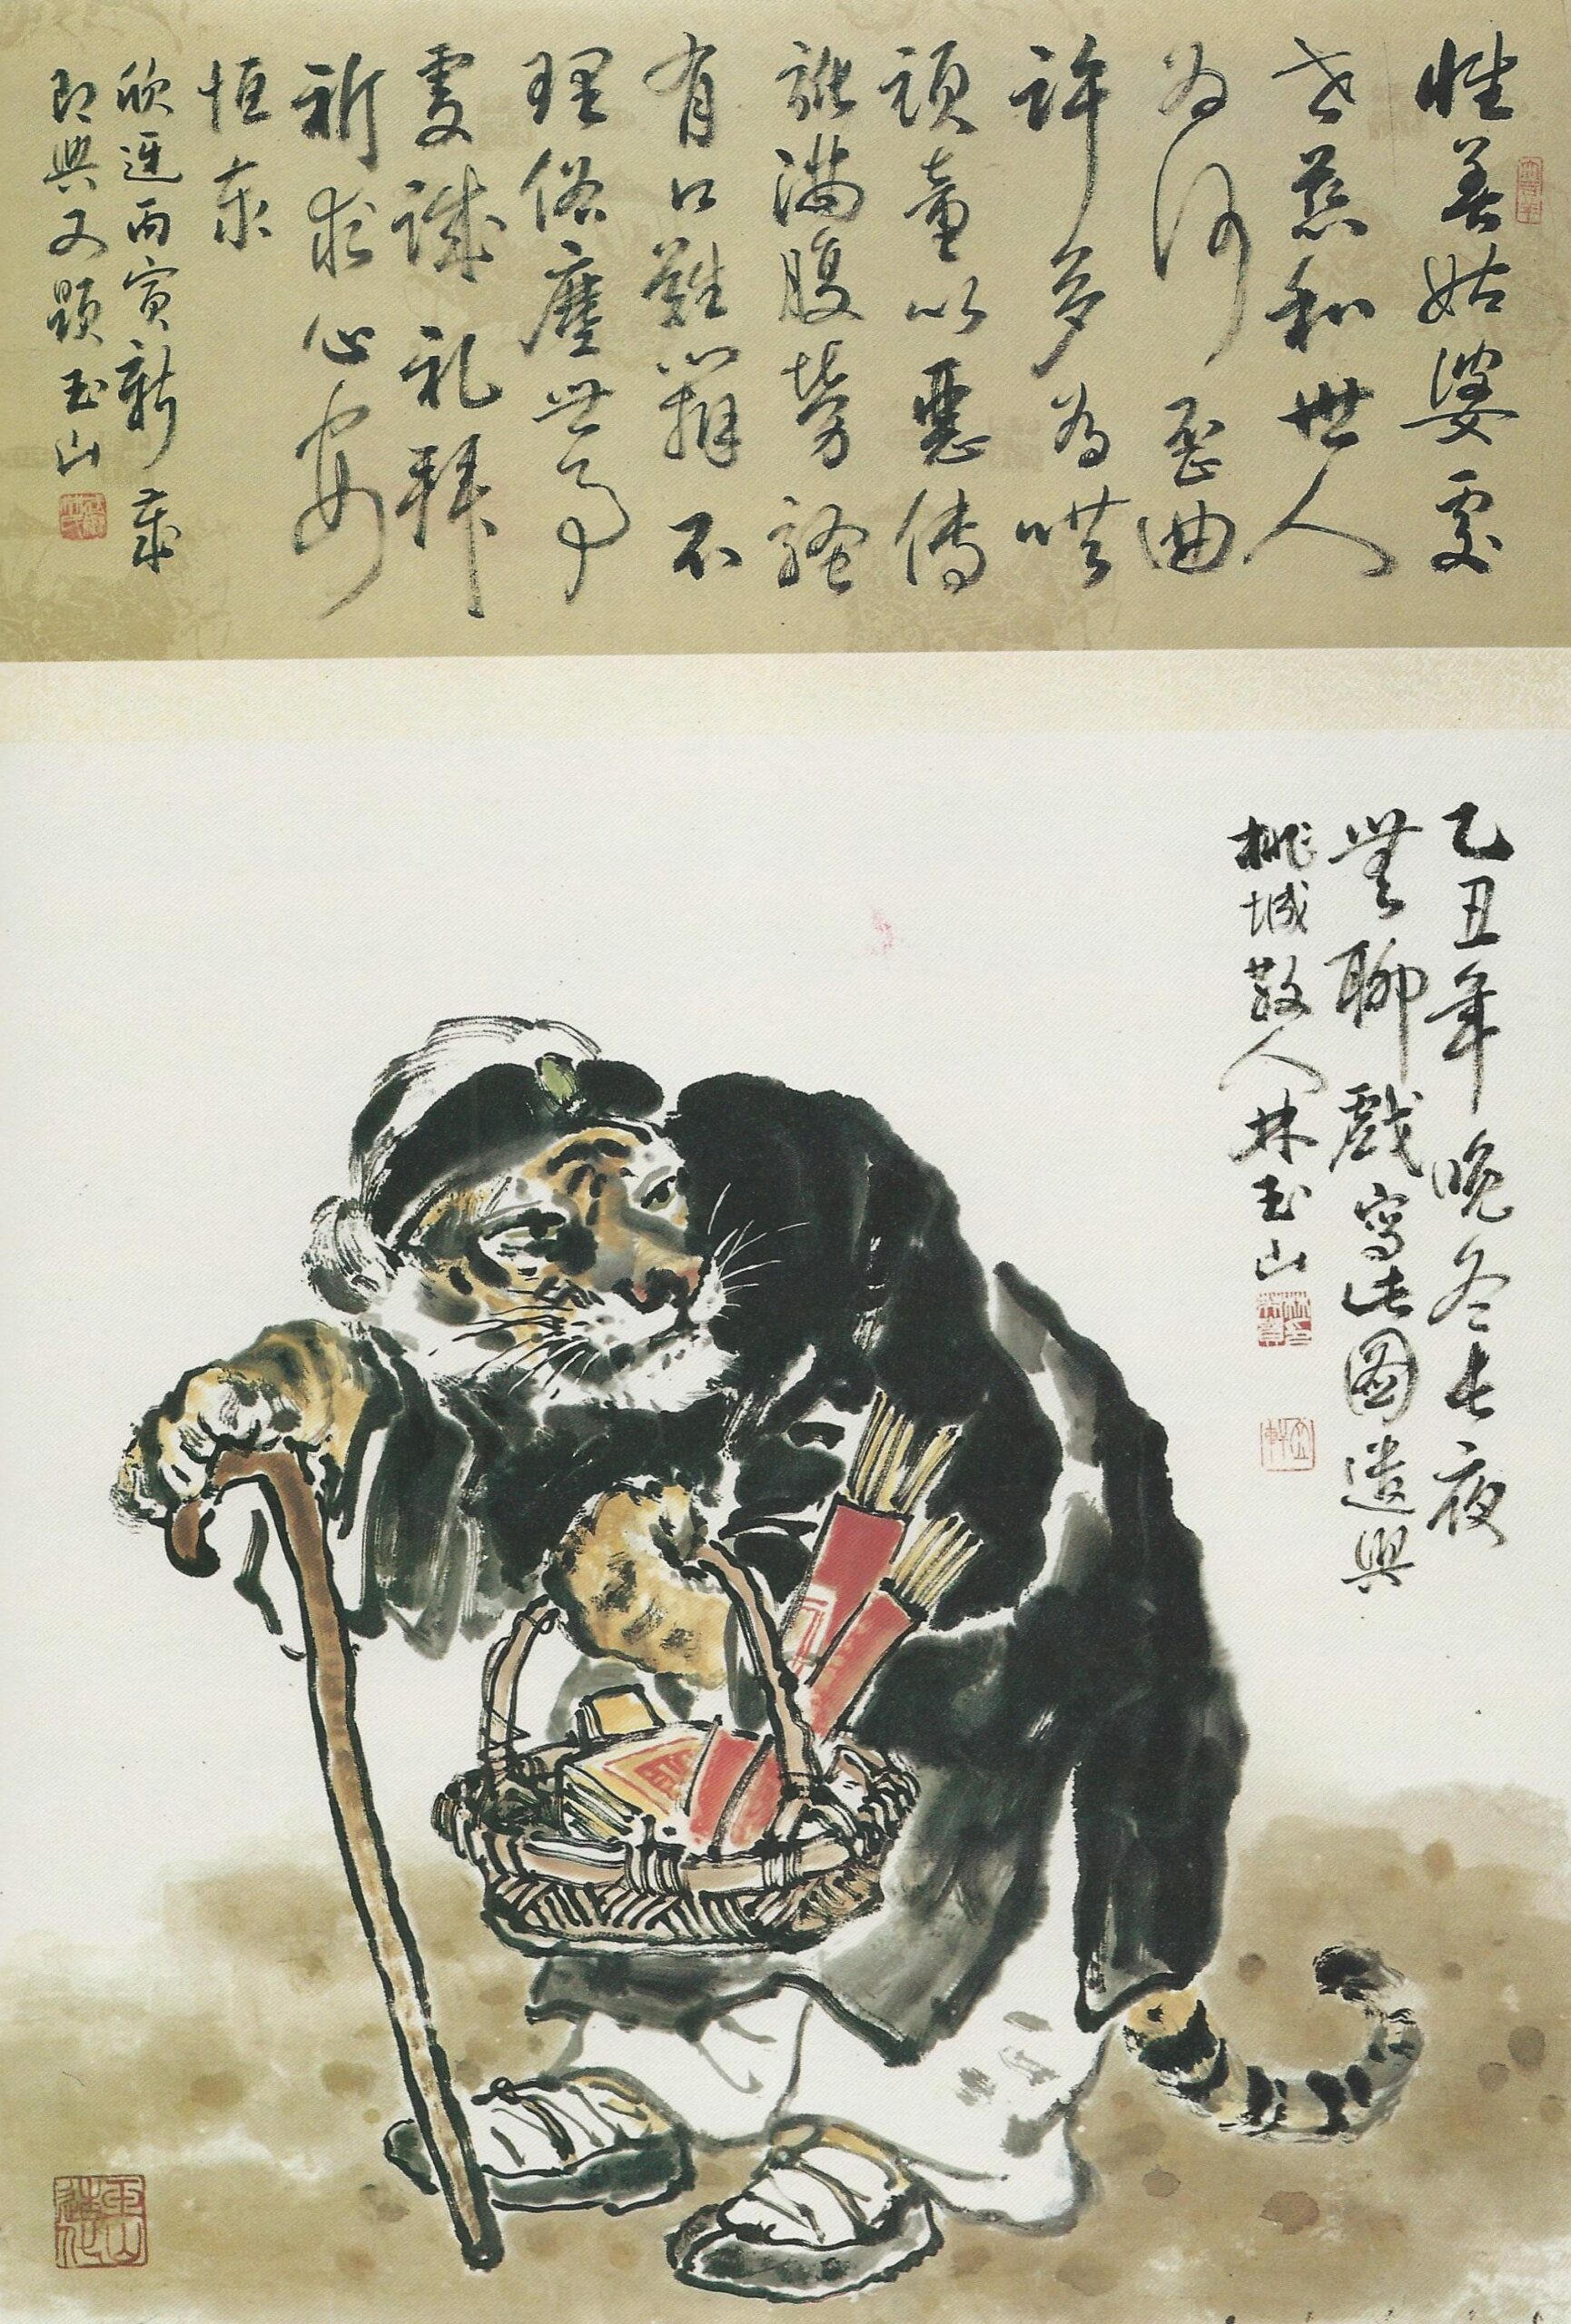 性善姑婆處
世慈和世人
為何歪曲
許多為哄
頑童以惡傳
訛滿腹勞騷
有口難辯不
理俗塵世事
虔誠礼拜
祈求心安
恒泰
欣逢丙寅新歲
即興又題玉山
乙丑年晚冬長夜
無聊戲寫此圖遣興
桃城散人林玉山